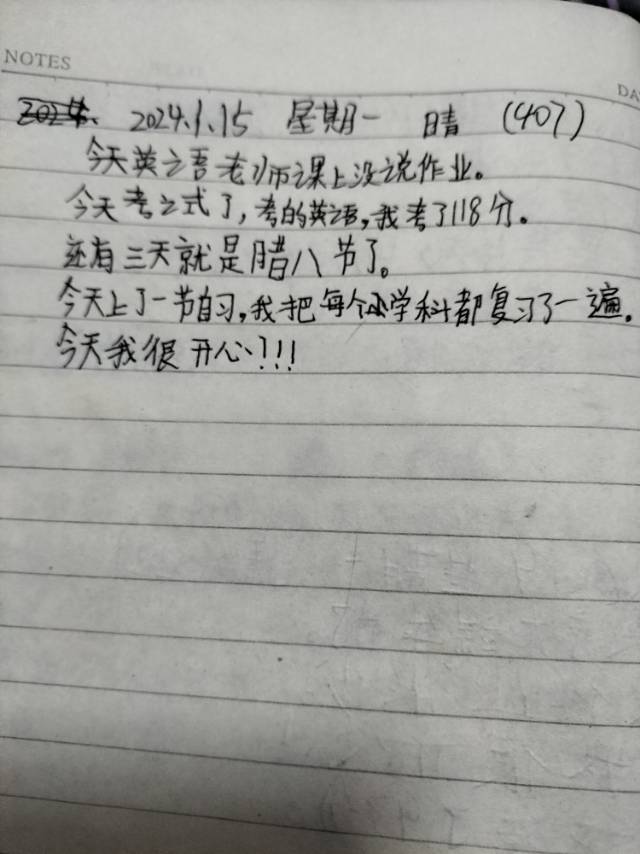 NOTES
DA
2024.1.15 星期一 晴 (407)
今天英语老师课上没说作业。
今天考试了,考的英语,我考了118分。
还有三天就是腊八节了。
今天上了一节自习,我把每个小学科都复习了一遍。
今天我很开心!!!